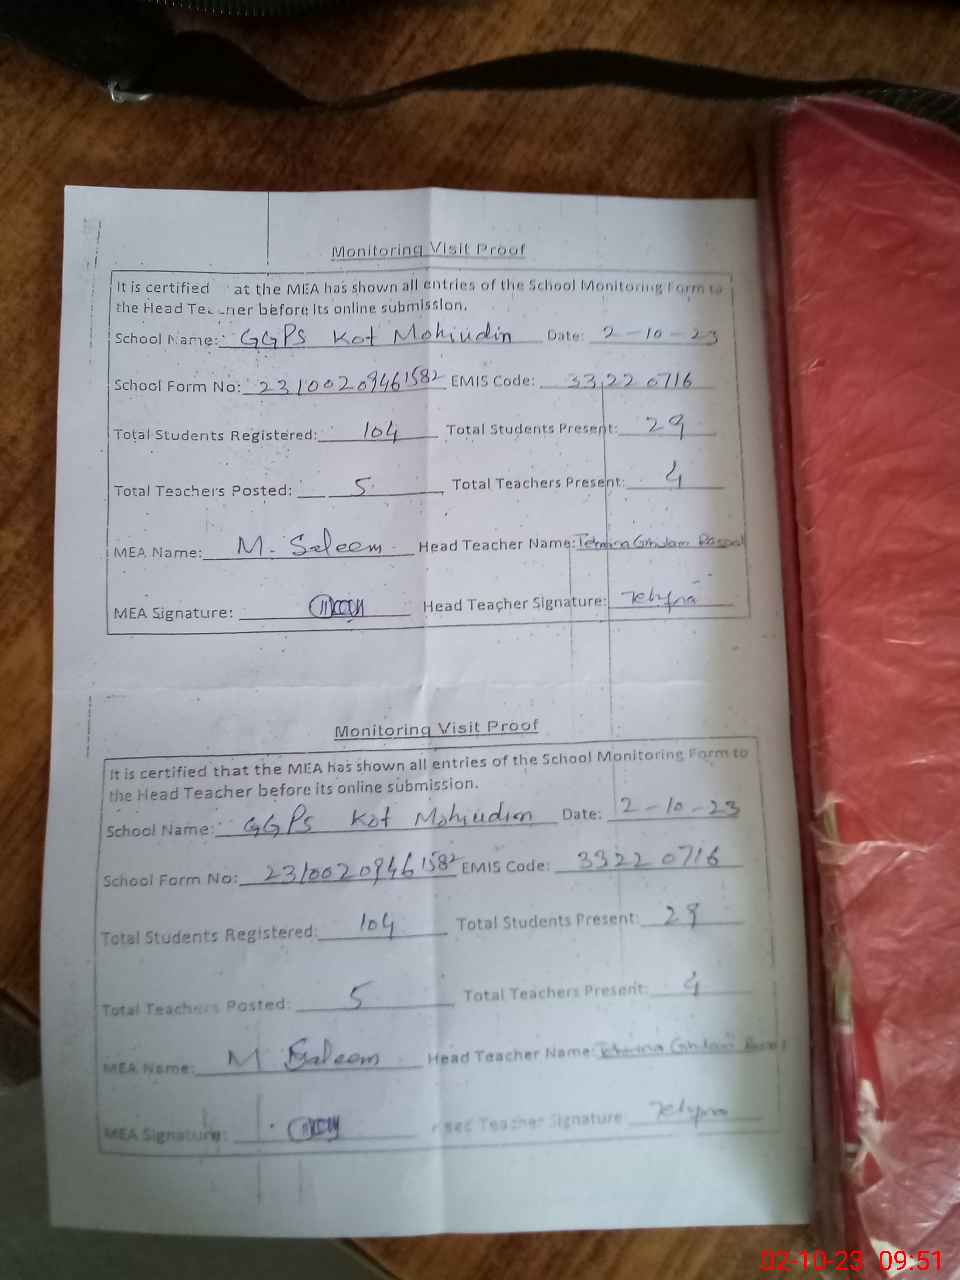 Monitoring Visit Proof
It is certified at the MEA has shown all entries of the School Monitoring Form to
the Head Teacher before its online submission.
School Name: GGPS Kot Mohiudin Date: 2-10-23
School Form No: 23100209461582 EMIS Code: 33220716
Total Students Registered: 104 Total Students Present: 29
Total Teachers Posted: 5 Total Teachers Present: 4
MEA Name: M. Saleem Head Teacher Name: Ghulam Rasool
MEA Signature: Head Teacher Signature:
Monitoring Visit Proof
It is certified that the MEA has shown all entries of the School Monitoring Form to
the Head Teacher before its online submission.
School Name: GGPS Kot Mohiudin Date: 2-10-23
School Form No: 23100209461582 EMIS Code: 33220716
Total Students Registered: 104 Total Students Present: 29
Total Teachers Posted: 5 Total Teachers Present: 4
MEA Name: M Saleem Head Teacher Name: Ghulam Rasool
MEA Signature: Head Teacher Signature:
02-10-23 09:51